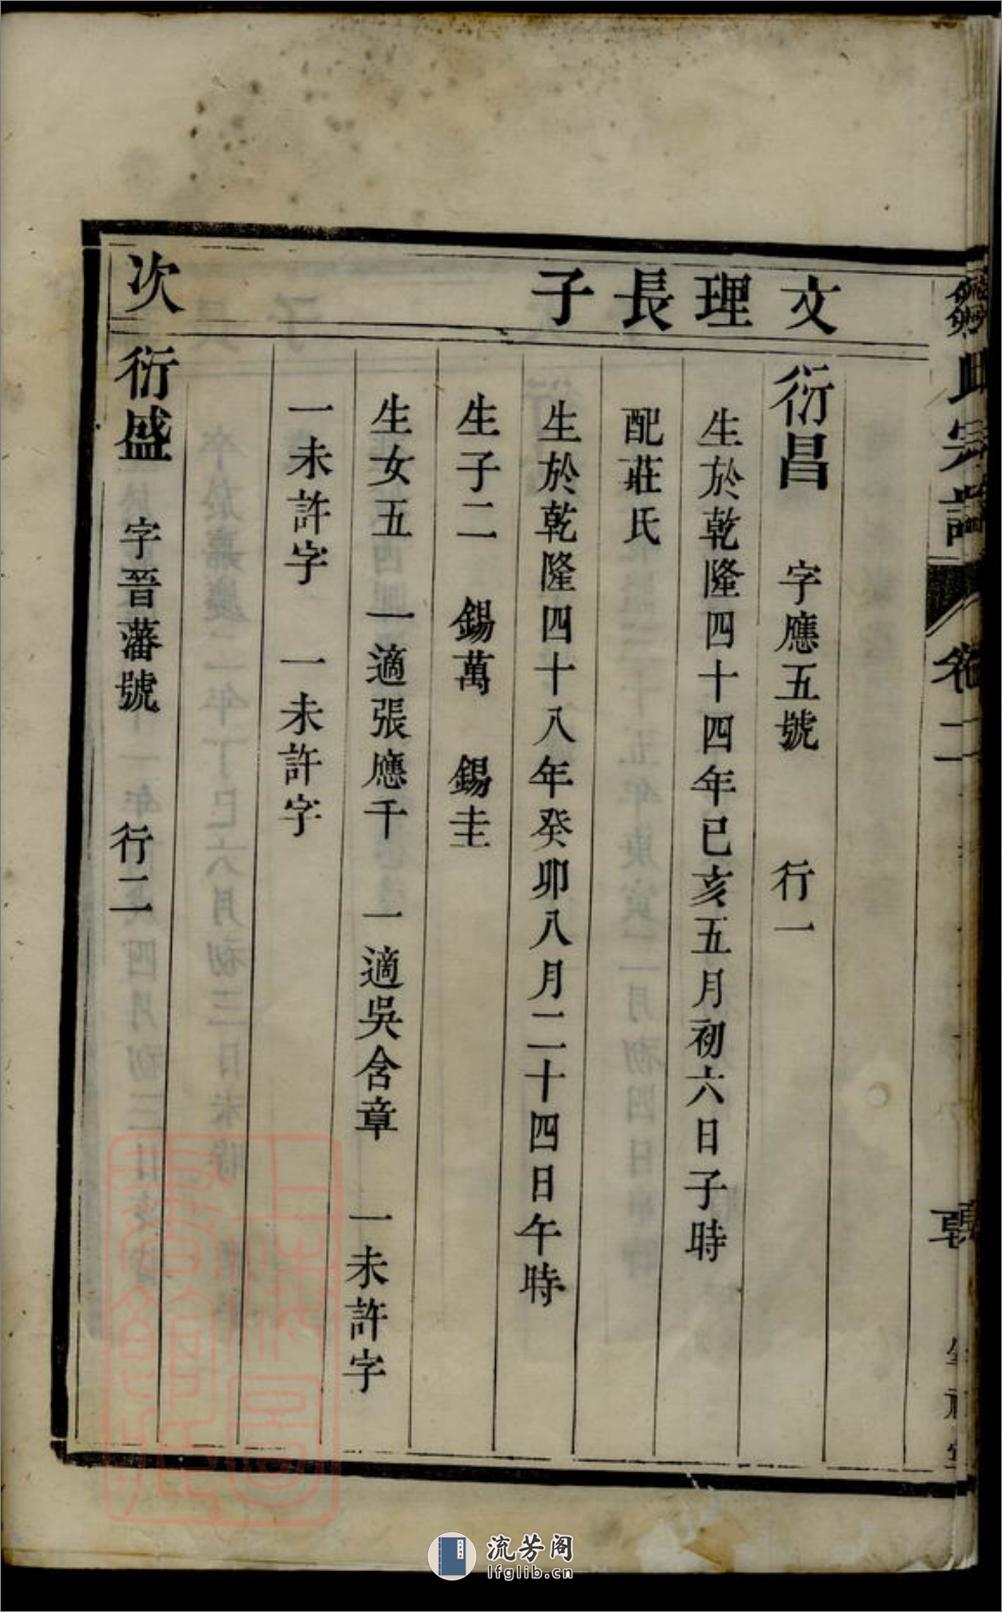 氏宗譜
卷二
文理長子
衍昌 字應五號 行一
生於乾隆四十四年已亥五月初六日子時
配莊氏
生於乾隆四十八年癸卯八月二十四日午時
生子二 錫萬 錫圭
生女五 一適張應千 一適吳含章 一未許字
一未許字 一未許字
次
衍盛 字晉藩號 行二
流芳阁
lfglib.cn